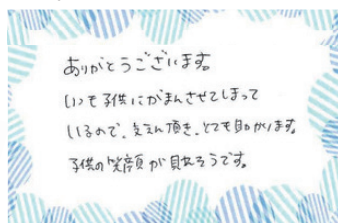 ありがとうございます。
いつも子供にがまんさせてしまって
いるので、支えん頂き、とても助かります。
子供の笑顔が見れそうです。